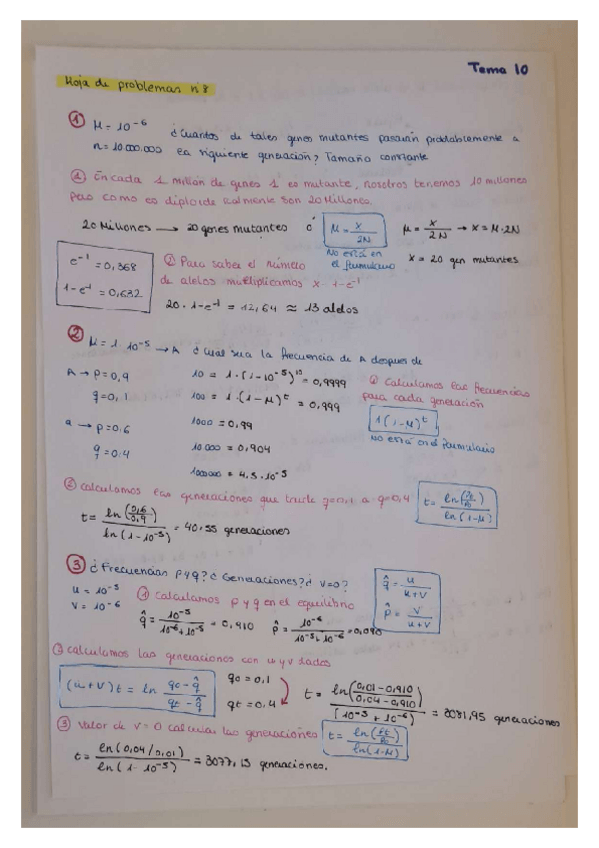 Tema 10
Hoja de problemas nº8
① M = 10⁻⁶ ¿Cuantos de tales genes mutantes pasarán probablemente a
n = 10 000.000 la siguiente generación? Tamaño constante
① En cada 1 millón de genes 1 es mutante, nosotros tenemos 10 millones
pero como es diploide realmente son 20 Millones.
20 Millones → 20 genes mutantes ó M = x/2N μ = x/2N → x = M·2N
No está en el formulario x = 20 gen mutantes
e⁻¹ = 0,368
1-e⁻¹ = 0,632
② Para saber el número
de alelos multiplicamos x 1-e⁻¹
20 · 1-e⁻¹ = 12,64 ≈ 13 alelos
② M = 1·10⁻⁵ → A ¿Cual sera la frecuencia de A despues de
A → p = 0,9
q = 0,1
a → p = 0.6
q = 0.4
10 = 1·(1-10⁻⁵)¹⁰ = 0,9999
100 = 1·(1-M)ᵗ = 0,999
1000 = 0,99
10 000 = 0,904
1000000 = 4,5·10⁻⁵
① Calculamos las frecuencias
para cada generación
1(1-M)ᵗ
No está en el formulario
② Calculamos las generaciones que q=0,1 a q=0,4
t = ln(0,6/0,9)/ln(1-10⁻⁵) = 40,55 generaciones
t = ln( )/ln(1-M)
③ ¿Frecuencias p y q? ¿Generaciones? ¿V=0?
u = 10⁻⁵
v = 10⁻⁶
① Calculamos p y q en el equilibrio
q̂ = 10⁻⁵/(10⁻⁶+10⁻⁵) = 0,910 p̂ = 10⁻⁶/(10⁻⁵+10⁻⁶) = 0,090
q̂ = u/(u+v)
p̂ = v/(u+v)
② Calculamos las generaciones con u y v dados
(u+v)t = ln (q0-q̂)/(qt-q̂)
q0 = 0,1
qt = 0,4
t = ln((0,01-0,910)/(0,04-0,910))/(10⁻⁵+10⁻⁶) = 3081,95 generaciones
③ Valor de V=0 calcular las generaciones t = ln( )/ln(1-M)
t = ln(0,04/0,01)/ln(1-10⁻⁵) = 3077,15 generaciones.